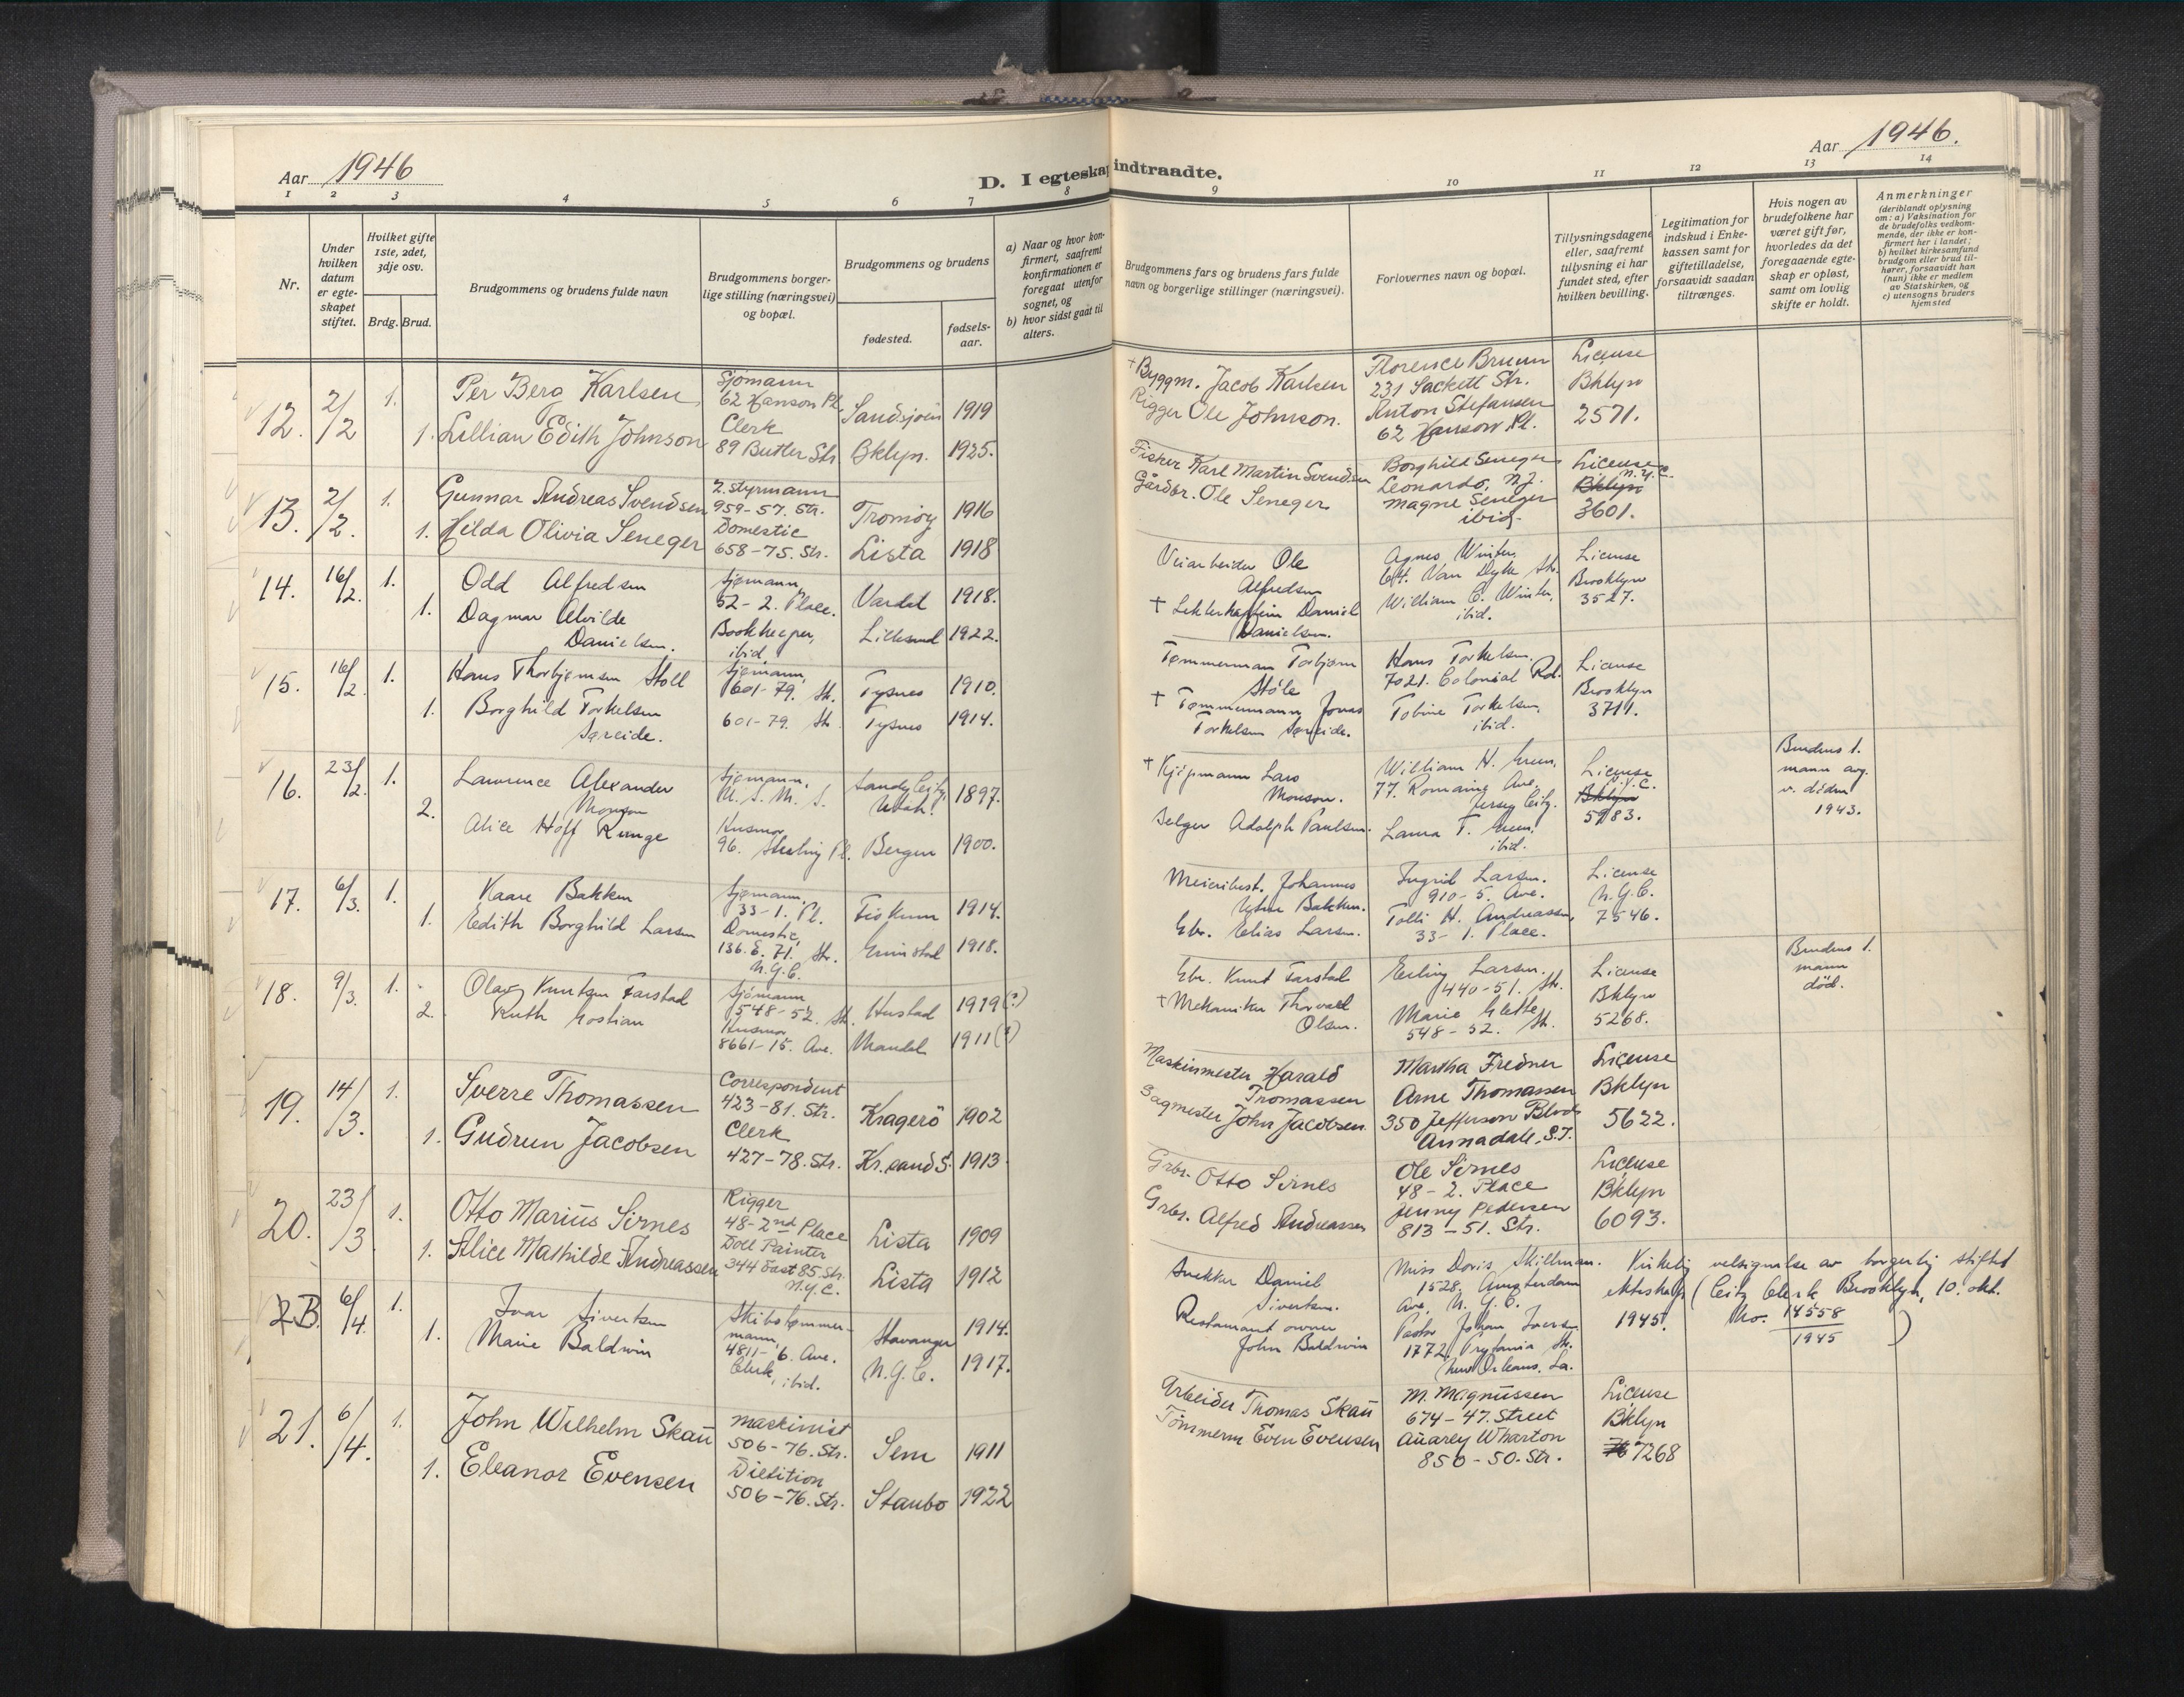 Aar 1946
D. I egteskap indtraadte.
Aar 1946.
1 2 3 4 5 6 7 8 9 10 11 12 13 14
Nr.
Under hvilken datum er egteskapet stiftet.
Hvilket gifte 1ste, 2det, 3dje osv.
Brdg. Brud.
Brudgommens og brudens fulde navn
Brudgommens borgerlige stilling (næringsvei) og bopæl.
Brudgommens og brudens
fødested.
fødselsaar.
a) Naar og hvor konfirmert, saafremt konfirmationen er foregaat utenfor sognet, og
b) hvor sidst gaat til alters.
Brudgommens fars og brudens fars fulde navn og borgerlige stillinger (næringsvei).
Forlovernes navn og bopæl.
Tillysningsdagene eller, saafremt tillysning ei har fundet sted, efter hvilken bevilling.
Legitimation for indskud i Enkekassen samt for giftetilladelse, forsaavidt saadan tiltrænges.
Hvis nogen av brudefolkene har været gift før, hvorledes da det foregaaende egteskap er opløst, samt om lovlig skifte er holdt.
Anmerkninger
(deriblandt oplysning om: a) Vaksination for de brudefolks vedkommende, der ikke er konfirmert her i landet; b) hvilket kirkesamfund brudgom eller brud tilhører, forsaavidt han (hun) ikke er medlem av Statskirken, og c) utensogns bruders hjemsted
12. 2/2 1. Per Berg Karlsen Sjömann 62 Hanson Pl. Sandsjoen 1919
1. Lillian Edith Johnson Clerk 89 Butler Str Bklyn. 1925.
+ Byggm. Jacob Karlsen
Rigger Ole Johnson.
Florence Bruun
231 Sackett Str.
Anton Stefansen
62 Hanson Pl.
License
Bklyn
2571.
13. 2/2. 1. Gunnar Andreas Svendsen 2. Styrmann 959-57. Str. Tromöy 1916
1. Hilda Olivia Seneger Domestic 658-75. Str. Lista 1918
Fisker Karl Martin Svendsen
Gårdbr. Ole Seneger
Borghild Seneger
Leonardo, N.J.
Magne Seneger
ibid.
License
N.Y.C.
Bklyn
3601.
14. 16/2. 1. Odd Alfredsen Sjømann, 52-2. Place. Vardø 1918.
1. Dagmar Alvilde Danielsen. Bookkeeper, ibid 1922.
Veiarbeider Ole
Alfredsen
+ Daniel
Danielsen.
Agnes Winter,
64. Van Dyke Str.
William C. Winter,
ibid.
License
Brooklyn
3527.
15. 16/2. 1. Hans Thorbjørnsen Støll Sjømann, 601-79. St. Tysnes 1910.
1. Borghild Torkelsen Søreide. 601-79. St. Tysnes 1914.
Tømmermann Torbjørn
Støle
+ Tømmermann Jonas
Torkelsen Søreide.
Hans Torkelsen,
7021. Colonial Rd.
Tobine Torkelsen,
ibid.
License
Brooklyn
3711.
16. 23/2. 1. Lawrence Alexander Monson Sjømann, U.S.M.S. Sandy City, Utah. 1897.
2. Alice Hoff Runge Husmor 96. Sterling Pl. Bergen 1900.
+ Kjøpmann Lars
Monson.
Selger Adolph Paulsen.
William H.
77. Romaine Ave,
Jersey City.
Laura T.
ibid.
License
N.Y.C.
Bklyn
5983.
Brudens 1.
mann avg.
v. døden
1943.
17. 6/3. 1. Kaare Bakken Sjømann, 33-1. Pl. Fiskum 1914.
1. Edith Borghild Larsen Domestic, 136. E. 71. Str. N.Y.C. Grimstad 1918.
Meieribest. Johannes
Bakken.
Gbr. Elias Larsen.
Ingrid Larsen.
910-5. Ave.
Tolli H. Andreassen,
33-1. Place.
License
N.Y.C.
7546.
18. 9/3. 1. Olav Knutsen Farstad Sjömann 548-52. St. Hustad 1919(?)
2. Ruth Gostian Husmor 8661-15. Ave. Mandal 1911(?)
Gbr. Knut Farstad
+ Mekaniker Thorvald
Olsen.
Erling Larsen.
440-51. St.
Marie Glette
548-52. St.
License
Bklyn
5268.
Brudens 1.
mann
död.
19. 14/3. 1. Sverre Thomassen Correspondent 423-81. Str. Kragerö 1902
1. Gudrun Jacobsen Clerk 427-78. Str. Kr.sand S. 1913
Maskinmester Harald
Tromassen
Sagmester John Jacobsen
Martha Fredner
Arne Thomassen
350 Jefferson Blvd
Annadale, S.I.
License
Bklyn
5622.
20. 23/3 1. Otto Marius Sirnes Rigger 48-2nd Place Lista 1909
1. Alice Mathilde Andreassen Doll Painter 344 East 85. Str. N.Y.C. Lista 1912
Grbr. Otto Sirnes
Grbr. Alfred Andreassen
Ole Sirnes
48-2. Place
Jenny Pedersen
813-51. Str.
License
Bklyn
6093.
2B. 6/4. 1. Ivar Sivertsen Skibstømmermann, 4811-6. Ave. Stavanger 1914.
1. Marie Baldwin Clerk, ibid. N.Y.C. 1917.
Snekker Daniel
Sivertsen.
Restaurant owner
John Baldwin
Miss Doris Skillman.
1528, Amsterdam
Ave, N.Y.C.
Pastor Johan Iversen
1772, Prytania St.
New Orleans, La.
Kirkelig velsignelse av borgerlig stiftet
ekteskap (City Clerk Brooklyn, 10. okt.
1945. No. 14558/1945)
21. 6/4. 1. John Wilhelm Skau Maskinist 506-76. Str. Sem 1911
1. Eleanor Evensen Dietition 506-76. Str. Staubo 1922
Arbeider Thomas Skau
Tömmerm Even Evensen
M. Magnussen
674-47. Street
Auarey Wharton
850-50. Str.
License
Bklyn
7268